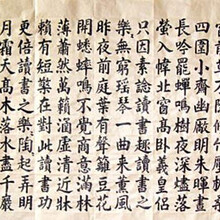 四圍小齋幽敞明朱暉晝
長吟罷蟬鳴樹夜深燼落
螢入幃北窗高卧羲皇侶
只因素諗讀書趣讀書之
樂無窮瑤琴一曲來薰風
昨夜前庭葉有聲籬豆花
開蟋蟀鳴不覺商意滿林
薄蕭然萬籟涵虛清近牀
賴有短檠在對此讀書功
更倍讀書之樂陶起弄明
月霜天高木落水盡千巖